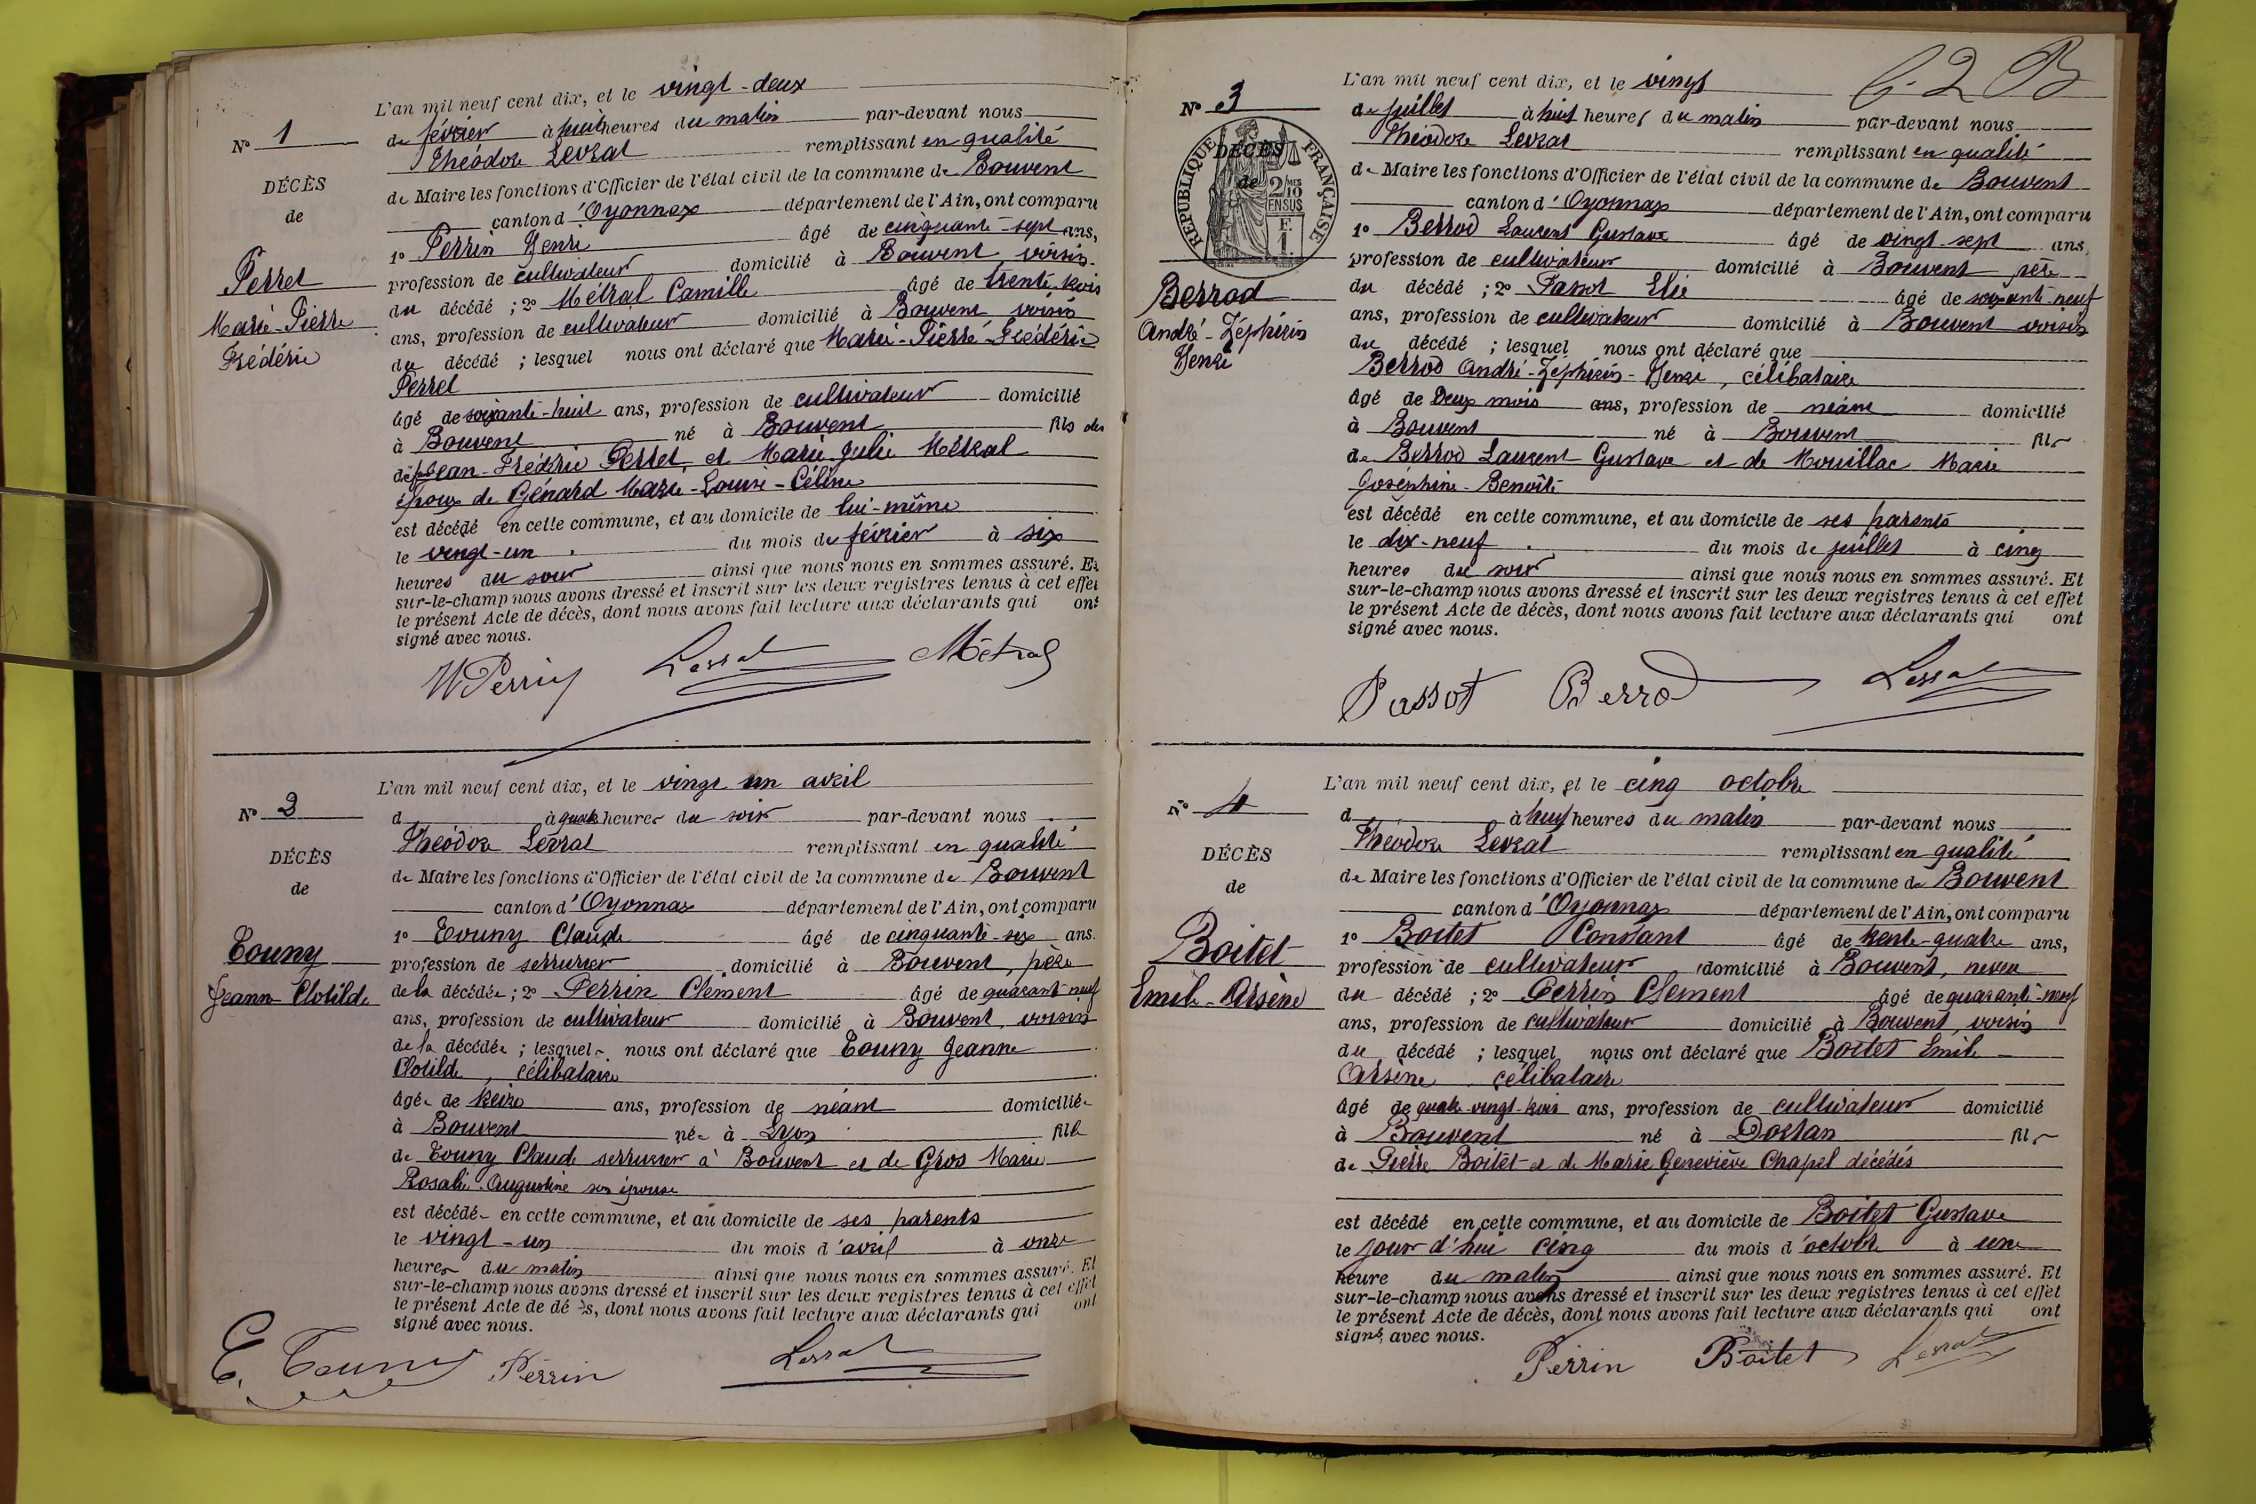 L'an mil neuf cent dix, et le vingt-deux
N° 1
de février à huit heures du matin par-devant nous
Théodore Levrat remplissant en qualité
DÉCÈS
de Maire les fonctions d'Officier de l'état civil de la commune de Bouvent
de
canton d'Oyonnax département de l'Ain, ont comparu
1° Perrin Henri âgé de cinquante-sept ans,
Perret
profession de cultivateur domicilié à Bouvent, voisin
Marie-Pierre
du décédé ; 2° Métral Camille âgé de trente-trois
Frédéric
ans, profession de cultivateur domicilié à Bouvent voisin
du décédé ; lesquel nous ont déclaré que Marie-Pierre-Frédéric
Perret
âgé de soixante-huit ans, profession de cultivateur domicilié
à Bouvent né à Bouvent fils des
Jean-Frédéric Perret, et Marie Julie Métral
époux de Génard Marie-Louise-Céline
est décédé en cette commune, et au domicile de lui-même
le vingt-un du mois de février à six
heures du soir ainsi que nous nous en sommes assuré. Et
sur-le-champ nous avons dressé et inscrit sur les deux registres tenus à cet effet
le présent Acte de décès, dont nous avons fait lecture aux déclarants qui ont
signé avec nous.
H Perrin Levrat Métral
L'an mil neuf cent dix, et le vingt un avril
N° 2
d à quatre heures du soir par-devant nous
Théodore Levrat remplissant en qualité
DÉCÈS
de Maire les fonctions d'Officier de l'état civil de la commune de Bouvent
de
canton d'Oyonnax département de l'Ain, ont comparu
1° Touny Claude âgé de cinquante-six ans.
Touny
profession de serrurier domicilié à Bouvent, père
Jeanne Clotilde
de la décédée ; 2° Perrin Clément âgé de quarante-neuf
ans, profession de cultivateur domicilié à Bouvent, voisin
de la décédée ; lesquels nous ont déclaré que Touny Jeanne
Clotilde, célibataire
âgée de treize ans, profession de néant domiciliée
à Bouvent née à Lyon fille
de Touny Claude serrurier à Bouvent et de Gros Marie
Rosalie Augustine son épouse
est décédée en cette commune, et au domicile de ses parents
le vingt-un du mois d'avril à onze
heures du matin ainsi que nous nous en sommes assuré. Et
sur-le-champ nous avons dressé et inscrit sur les deux registres tenus à cet effet
le présent Acte de décès, dont nous avons fait lecture aux déclarants qui ont
signé avec nous.
C. Touny Perrin Levrat
L'an mil neuf cent dix, et le vingt
N° 3
de juillet à huit heures du matin par-devant nous
Théodore Levrat remplissant en qualité
RÉPUBLIQUE FRANÇAISE
2/10 EN SUS
F. 1.
DÉCÈS
de
de Maire les fonctions d'Officier de l'état civil de la commune de Bouvent
canton d'Oyonnax département de l'Ain, ont comparu
1° Berrod Laurent Gustave âgé de vingt-sept ans,
profession de cultivateur domicilié à Bouvent père
Berrod
du décédé ; 2° Passot Elie âgé de soixante-neuf
André-Zéphirin
ans, profession de cultivateur domicilié à Bouvent voisin
Henri
du décédé ; lesquel nous ont déclaré que
Berrod André-Zéphirin-Henri, célibataire
âgé de Deux mois ans, profession de néant domicilié
à Bouvent né à Bouvent fils
de Berrod Laurent Gustave et de Mouillac Marie
Joséphine-Benoîte
est décédé en cette commune, et au domicile de ses parents
le dix-neuf du mois de juillet à cinq
heures du soir ainsi que nous nous en sommes assuré. Et
sur-le-champ nous avons dressé et inscrit sur les deux registres tenus à cet effet
le présent Acte de décès, dont nous avons fait lecture aux déclarants qui ont
signé avec nous.
Passot Berrod Levrat
L'an mil neuf cent dix, et le cinq octobre
N° 4
d à huit heures du matin par-devant nous
Théodore Levrat remplissant en qualité
DÉCÈS
de Maire les fonctions d'Officier de l'état civil de la commune de Bouvent
de
canton d'Oyonnax département de l'Ain, ont comparu
1° Boitet Constant âgé de trente-quatre ans,
Boitet
profession de cultivateur domicilié à Bouvent, neveu
Emile-Arsène
du décédé ; 2° Perrin Clément âgé de quarante-neuf
ans, profession de cultivateur domicilié à Bouvent, voisin
du décédé ; lesquel nous ont déclaré que Boitet Emile
Arsène célibataire
âgé de quatre-vingt-trois ans, profession de cultivateur domicilié
à Bouvent né à Dortan fils
de Pierre Boitet et de Marie Geneviève Chapel décédés
est décédé en cette commune, et au domicile de Boitet Gustave
le jour d'hui cinq du mois d'octobre à une
heure du matin ainsi que nous nous en sommes assuré. Et
sur-le-champ nous avons dressé et inscrit sur les deux registres tenus à cet effet
le présent Acte de décès, dont nous avons fait lecture aux déclarants qui ont
signé avec nous.
Perrin Boitet Levrat